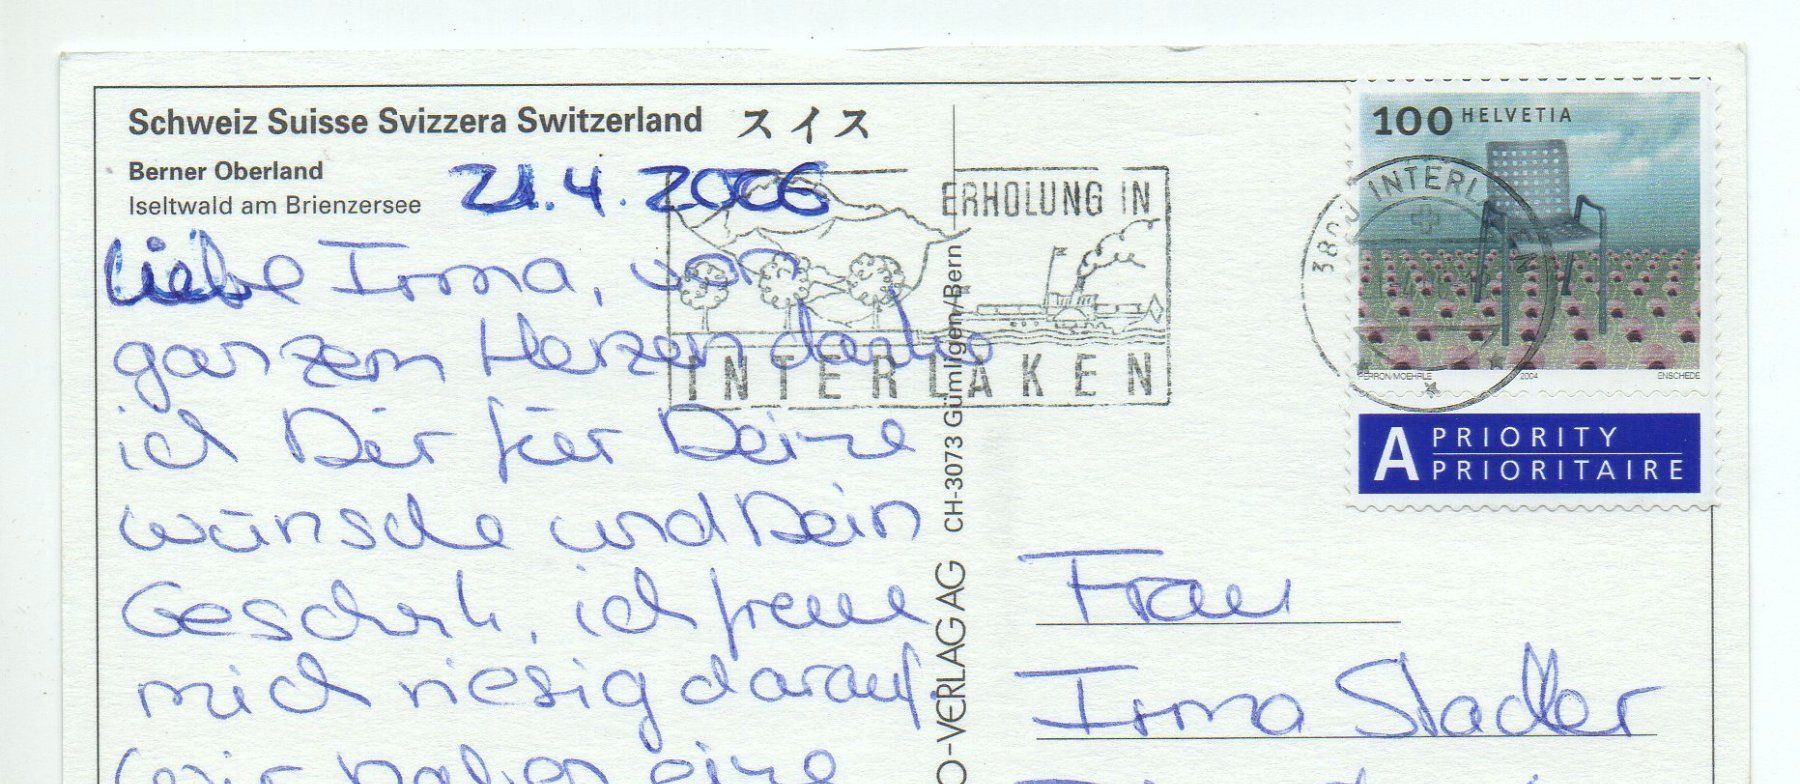 Schweiz Suisse Svizzera Switzerland スイス
Berner Oberland
Iseltwald am Brienzersee
21.4.2006
Liebe Irma, von
ganzem Herzen danke
ich Dir für Deine
Wünsche und Dein
Geschenk, ich freue
mich riesig darauf.
Wir haben eine
ERHOLUNG IN
INTERLAKEN
O-VERLAG AG CH-3073 Gümligen/Bern
100 HELVETIA
3800 INTERLAKEN
PERRON/MOEHRLE 2004 ENSCHEDE
A PRIORITY
PRIORITAIRE
Frau
Irma Stadler